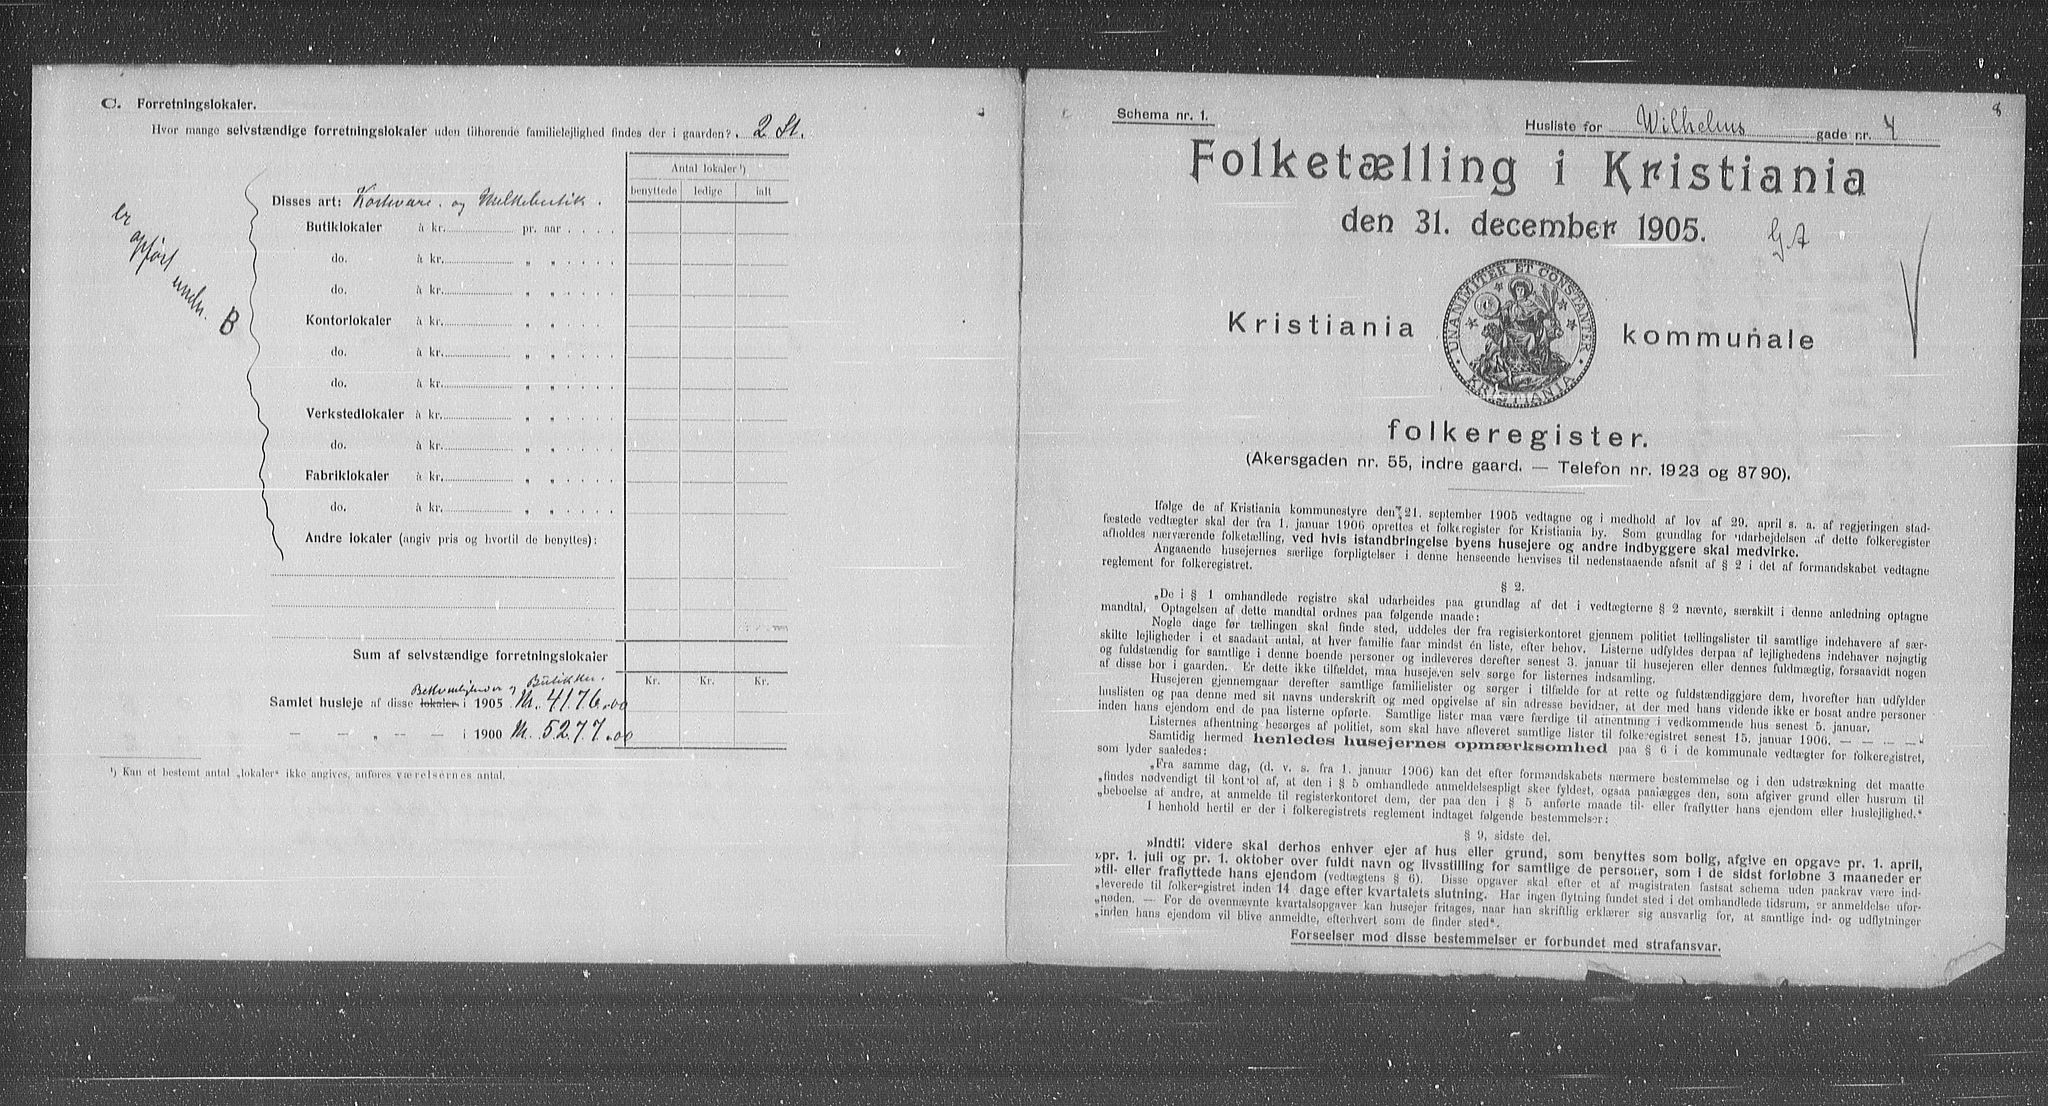 C. Forretningslokaler.
Hvor mange selvstændige forretningslokaler uden tilhørende familielejlighed findes der i gaarden? 2 St.
Antal lokaler ¹)
benyttede ledige ialt
Disses art: Kortevare. og Melkebutik.
Butiklokaler à kr. pr. aar
do. à kr. „ „
do. à kr. „ „
Kontorlokaler à kr. „ „
do. à kr. „ „
do. à kr. „ „
Verkstedlokaler à kr. „ „
do. à kr. „ „
Fabriklokaler à kr. „ „
do. à kr. „ „
Andre lokaler (angiv pris og hvortil de benyttes):
er
opført
under.
B
Sum af selvstændige forretningslokaler
Kr. Kr. Kr.
Bekvemligheder og Butikker.
Samlet husleje af disse lokaler i 1905 Kr. 4176.00
— — „ — — i 1900 Kr. 5277.00
¹) Kan et bestemt antal „lokaler“ ikke angives, anføres værelsernes antal.
8
Schema nr. 1.
Husliste for Wilhelms gade nr. 4
Folketælling i Kristiania
den 31. december 1905.
G. A
Kristiania kommunale
UNANIMITER ET CONSTANTER
KRISTIANIA
folkeregister.
(Akersgaden nr. 55, indre gaard. — Telefon nr. 1923 og 8790).
Ifølge de af Kristiania kommunestyre den 21. september 1905 vedtagne og i medhold af lov af 29. april s. a. af regjeringen stad-
fæstede vedtægter skal der fra 1. januar 1906 oprettes et folkeregister for Kristiania by. Som grundlag for udarbejdelsen af dette folkeregister
afholdes nærværende folketælling, ved hvis istandbringelse byens husejere og andre indbyggere skal medvirke.
Angaaende husejernes særlige forpligtelser i denne henseende henvises til nedenstaaende afsnit af § 2 i det af formandskabet vedtagne
reglement for folkeregistret.
§ 2.
„De i § 1 omhandlede registre skal udarbeides paa grundlag af det i vedtægterne § 2 nævnte, særskilt i denne anledning optagne
mandtal. Optagelsen af dette mandtal ordnes paa følgende maade:
Nogle dage før tællingen skal finde sted, uddeles der fra registerkontoret gjennem politiet tællingslister til samtlige indehavere af sær-
skilte lejligheder i et saadant antal, at hver familie faar mindst én liste, efter behov. Listerne udfyldes derpaa af lejlighedens indehaver nøjagtig
og fuldstændig for samtlige i denne boende personer og indleveres derefter senest 3. januar til husejeren eller dennes fuldmægtig, forsaavidt nogen
af disse bor i gaarden. Er dette ikke tilfældet, maa husejeren selv sørge for listernes indsamling.
Husejeren gjennemgaar derefter samtlige familielister og sørger i tilfælde for at rette og fuldstændiggjøre dem, hvorefter han udfylder
huslisten og paa denne med sit navns underskrift og med opgivelse af sin adresse bevidner, at der med hans vidende ikke er bosat andre personer
inden hans ejendom end de paa listerne opførte. Samtlige lister maa være færdige til afhentning i vedkommende hus senest 5. januar.
Listernes afhentning besørges af politiet, som skal have afleveret samtlige lister til folkeregistret senest 15. januar 1906. — — — —“
Samtidig hermed henledes husejernes opmærksomhed paa § 6 i de kommunale vedtægter for folkeregistret,
som lyder saaledes:
„Fra samme dag, (d. v. s. fra 1. januar 1906) kan det efter formandskabets nærmere bestemmelse og i den udstrækning det maatte
„findes nødvendigt til kontrol af, at den i § 5 omhandlede anmeldelsespligt sker fyldest, ogsaa paalægges den, som afgiver grund eller husrum til
„beboelse af andre, at anmelde til registerkontoret dem, der paa den i § 5 anførte maade til- eller fraflytter hans ejendom eller huslejlighed.“
I henhold hertil er der i folkeregistrets reglement indtaget følgende bestemmelser:
§ 9, sidste del.
»Indtil videre skal derhos enhver ejer af hus eller grund, som benyttes som bolig, afgive en opgave pr. 1. april,
»pr. 1. juli og pr. 1. oktober over fuldt navn og livsstilling for samtlige de personer, som i de sidst forløbne 3 maaneder er
»til- eller fraflyttede hans ejendom (vedtægtens § 6). Disse opgaver skal efter et af magistraten fastsat schema uden paakrav være ind-
„leverede til folkeregistret inden 14 dage efter kvartalets slutning. Har ingen flytning fundet sted i det omhandlede tidsrum, er anmeldelse ufor-
„nøden. — For de ovennævnte kvartalsopgaver kan husejer fritages, naar han skriftlig erklærer sig ansvarlig for, at samtlige ind- og udflytninger
„inden hans ejendom vil blive anmeldte, efterhvert som de finder sted“.
Forseelser mod disse bestemmelser er forbundet med strafansvar.